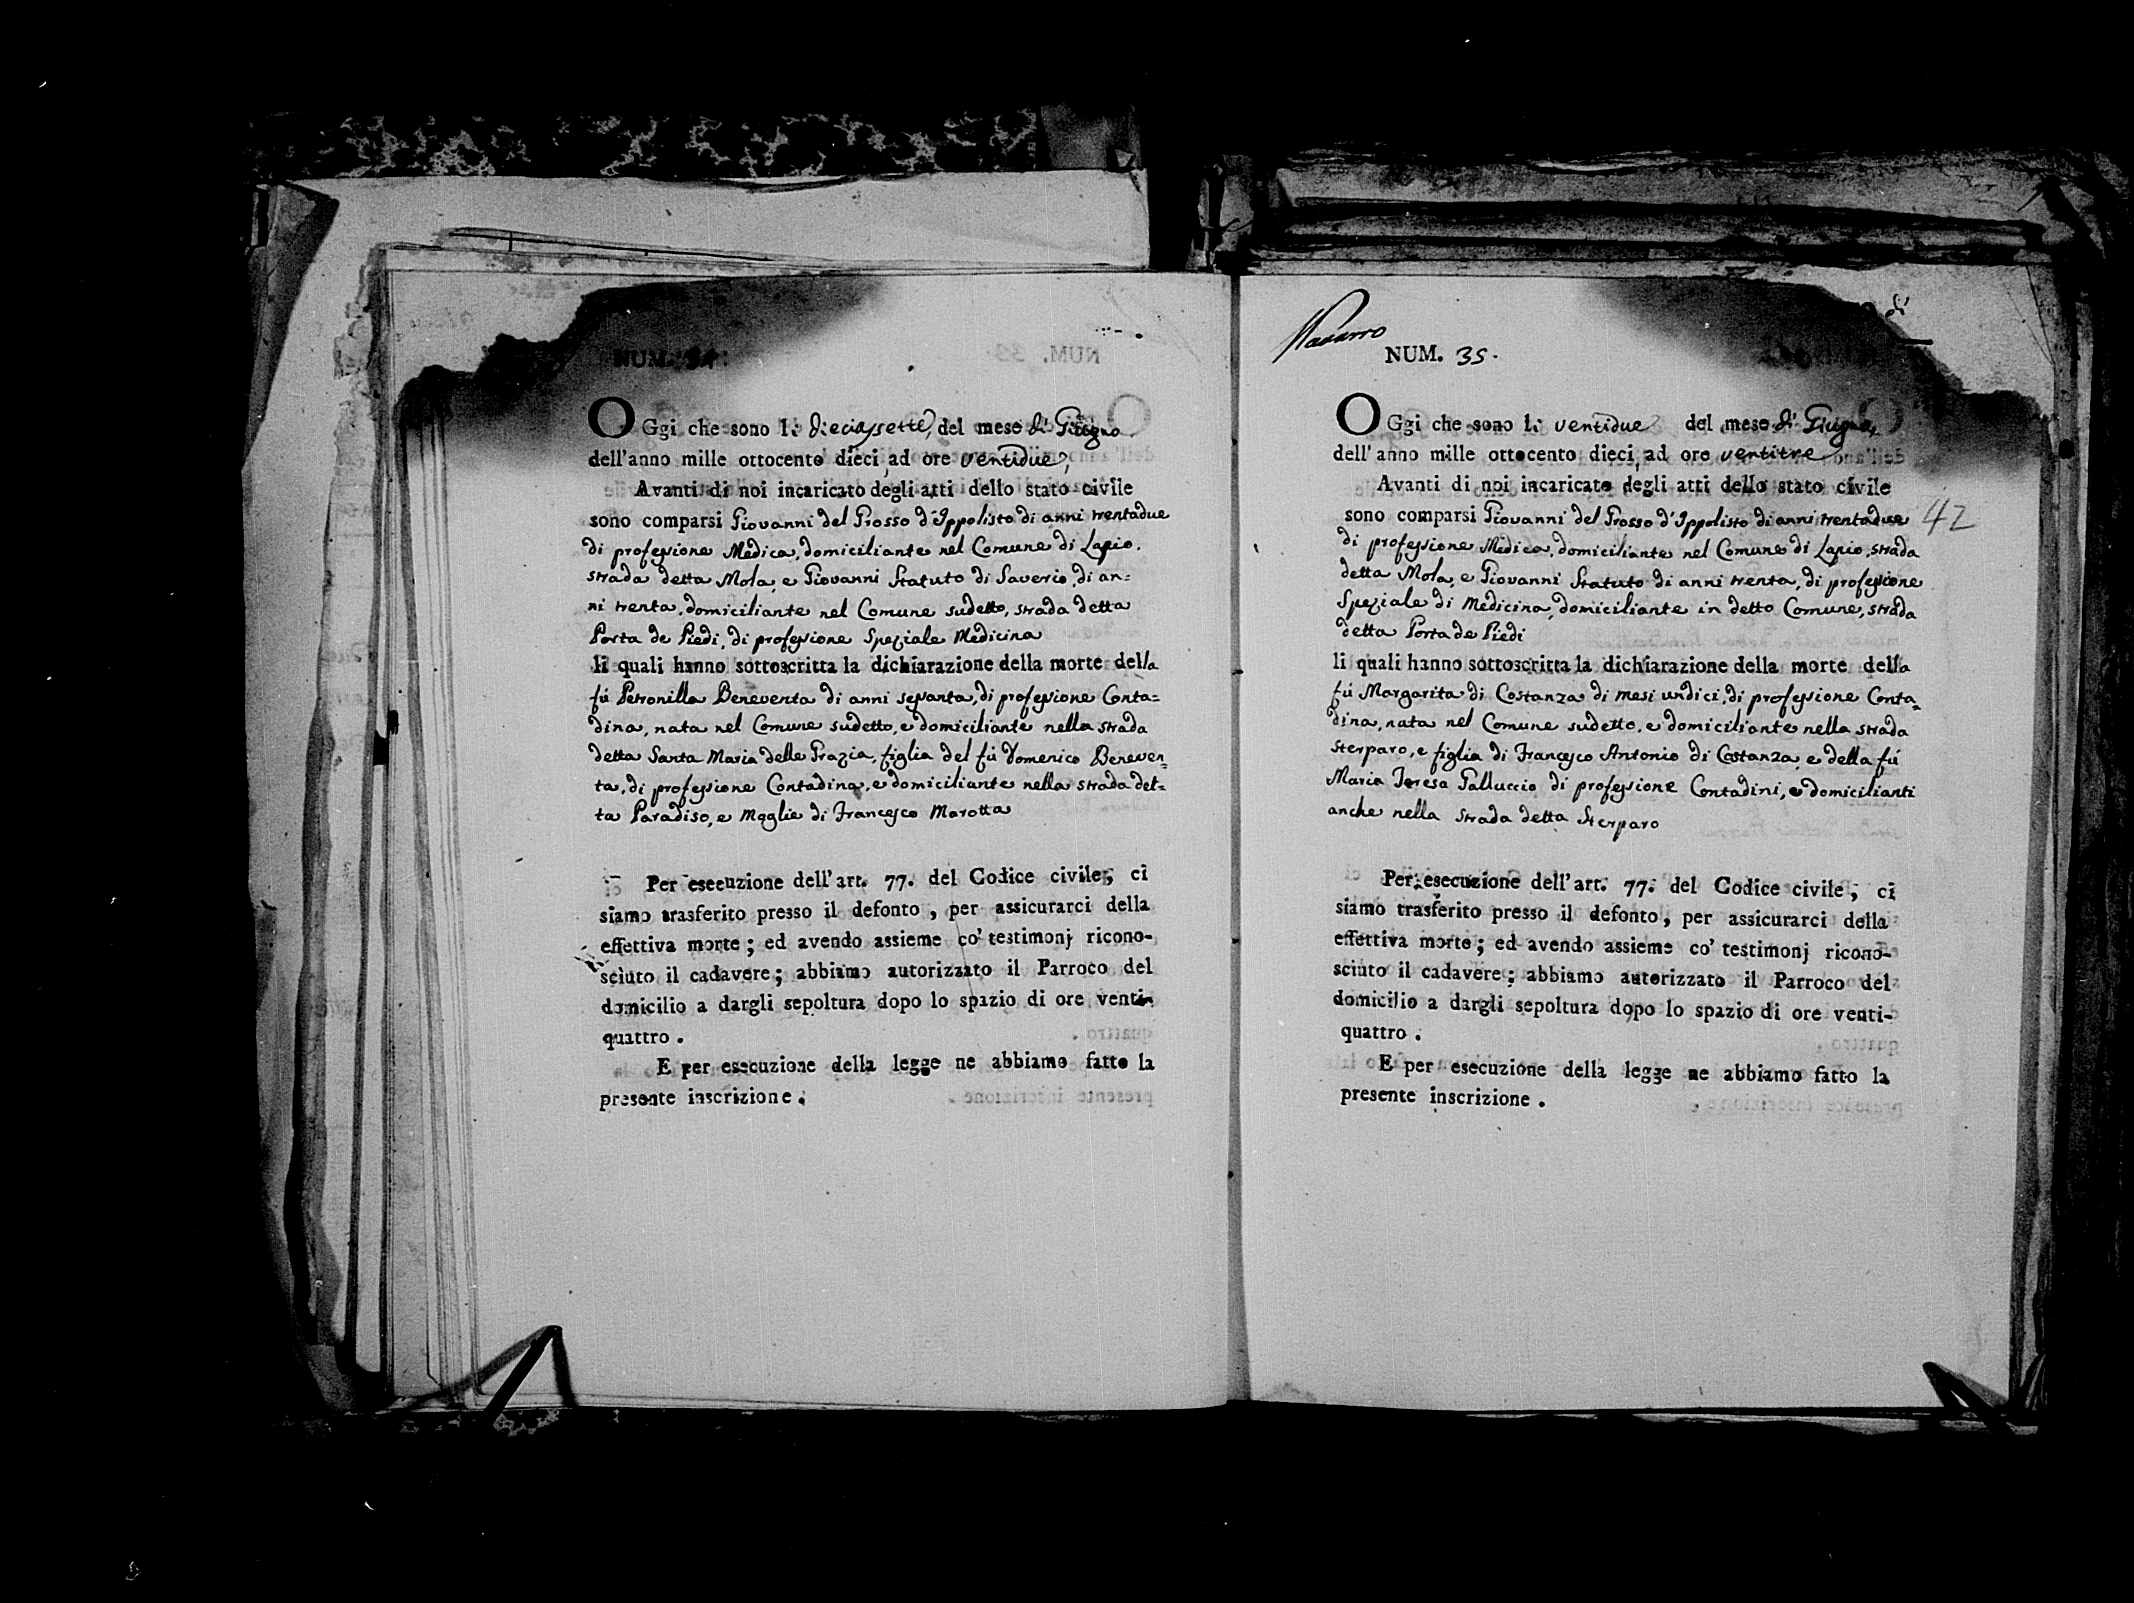 NUM. 34.
OGgi che sono li dieciassette, del mese di Giugno
dell'anno mille ottocento dieci, ad ore ventidue,
Avanti di noi incaricato degli atti dello stato civile
sono comparsi Giovanni del Grosso d'Ippolisto di anni trentadue
di professione Medica, domiciliante nel Comune di Lapio,
strada detta Mola, e Giovanni Statuto di Saverio, di an=
ni trenta, domiciliante nel Comune sudetto, strada detta
Porta de Piedi, di professione Speziale Medicina
li quali hanno sottoscritta la dichiarazione della morte della
fù Petronilla Beneventa di anni sessanta, di professione Conta=
dina, nata nel Comune sudetto, e domiciliante nella strada
detta Santa Maria delle Grazia, figlia del fù Domenico Beneven=
ta, di professione Contadina, e domiciliante nella strada det=
ta Paradiso, e Moglie di Francesco Marotta
Per esecuzione dell'art. 77. del Codice civile, ci
siamo trasferito presso il defonto, per assicurarci della
effettiva morte; ed avendo assieme co' testimonj ricono-
sciuto il cadavere; abbiamo autorizzato il Parroco del
domicilio a dargli sepoltura dopo lo spazio di ore venti-
quattro.
E per esecuzione della legge ne abbiamo fatto la
presente inscrizione.
di
Navarro
NUM. 35.
OGgi che sono li ventidue del mese di Giugno,
dell'anno mille ottocento dieci, ad ore ventitre,
Avanti di noi incaricato degli atti dello stato civile
sono comparsi Giovanni del Grosso d'Ippolisto di anni trentadue 42
di professione Medica, domiciliante nel Comune di Lapio, strada
detta Mola, e Giovanni Statuto di anni trenta, di professione
Speziale di Medicina, domiciliante in detto Comune, strada
detta Porta de Piedi
li quali hanno sottoscritta la dichiarazione della morte della
fù Margarita di Costanza di mesi undici, di professione Conta=
dina, nata nel Comune sudetto, e domiciliante nella strada
Sterparo, e figlia di Francesco Antonio di Costanza, e della fù
Maria Teresa Galluccio di professione Contadini, e domicilianti
anche nella strada detta Sterparo
Per esecuzione dell'art. 77. del Codice civile, ci
siamo trasferito presso il defonto, per assicurarci della
effettiva morte; ed avendo assieme co' testimonj ricono-
sciuto il cadavere; abbiamo autorizzato il Parroco del
domicilio a dargli sepoltura dopo lo spazio di ore venti-
quattro.
E per esecuzione della legge ne abbiamo fatto la
presente inscrizione.